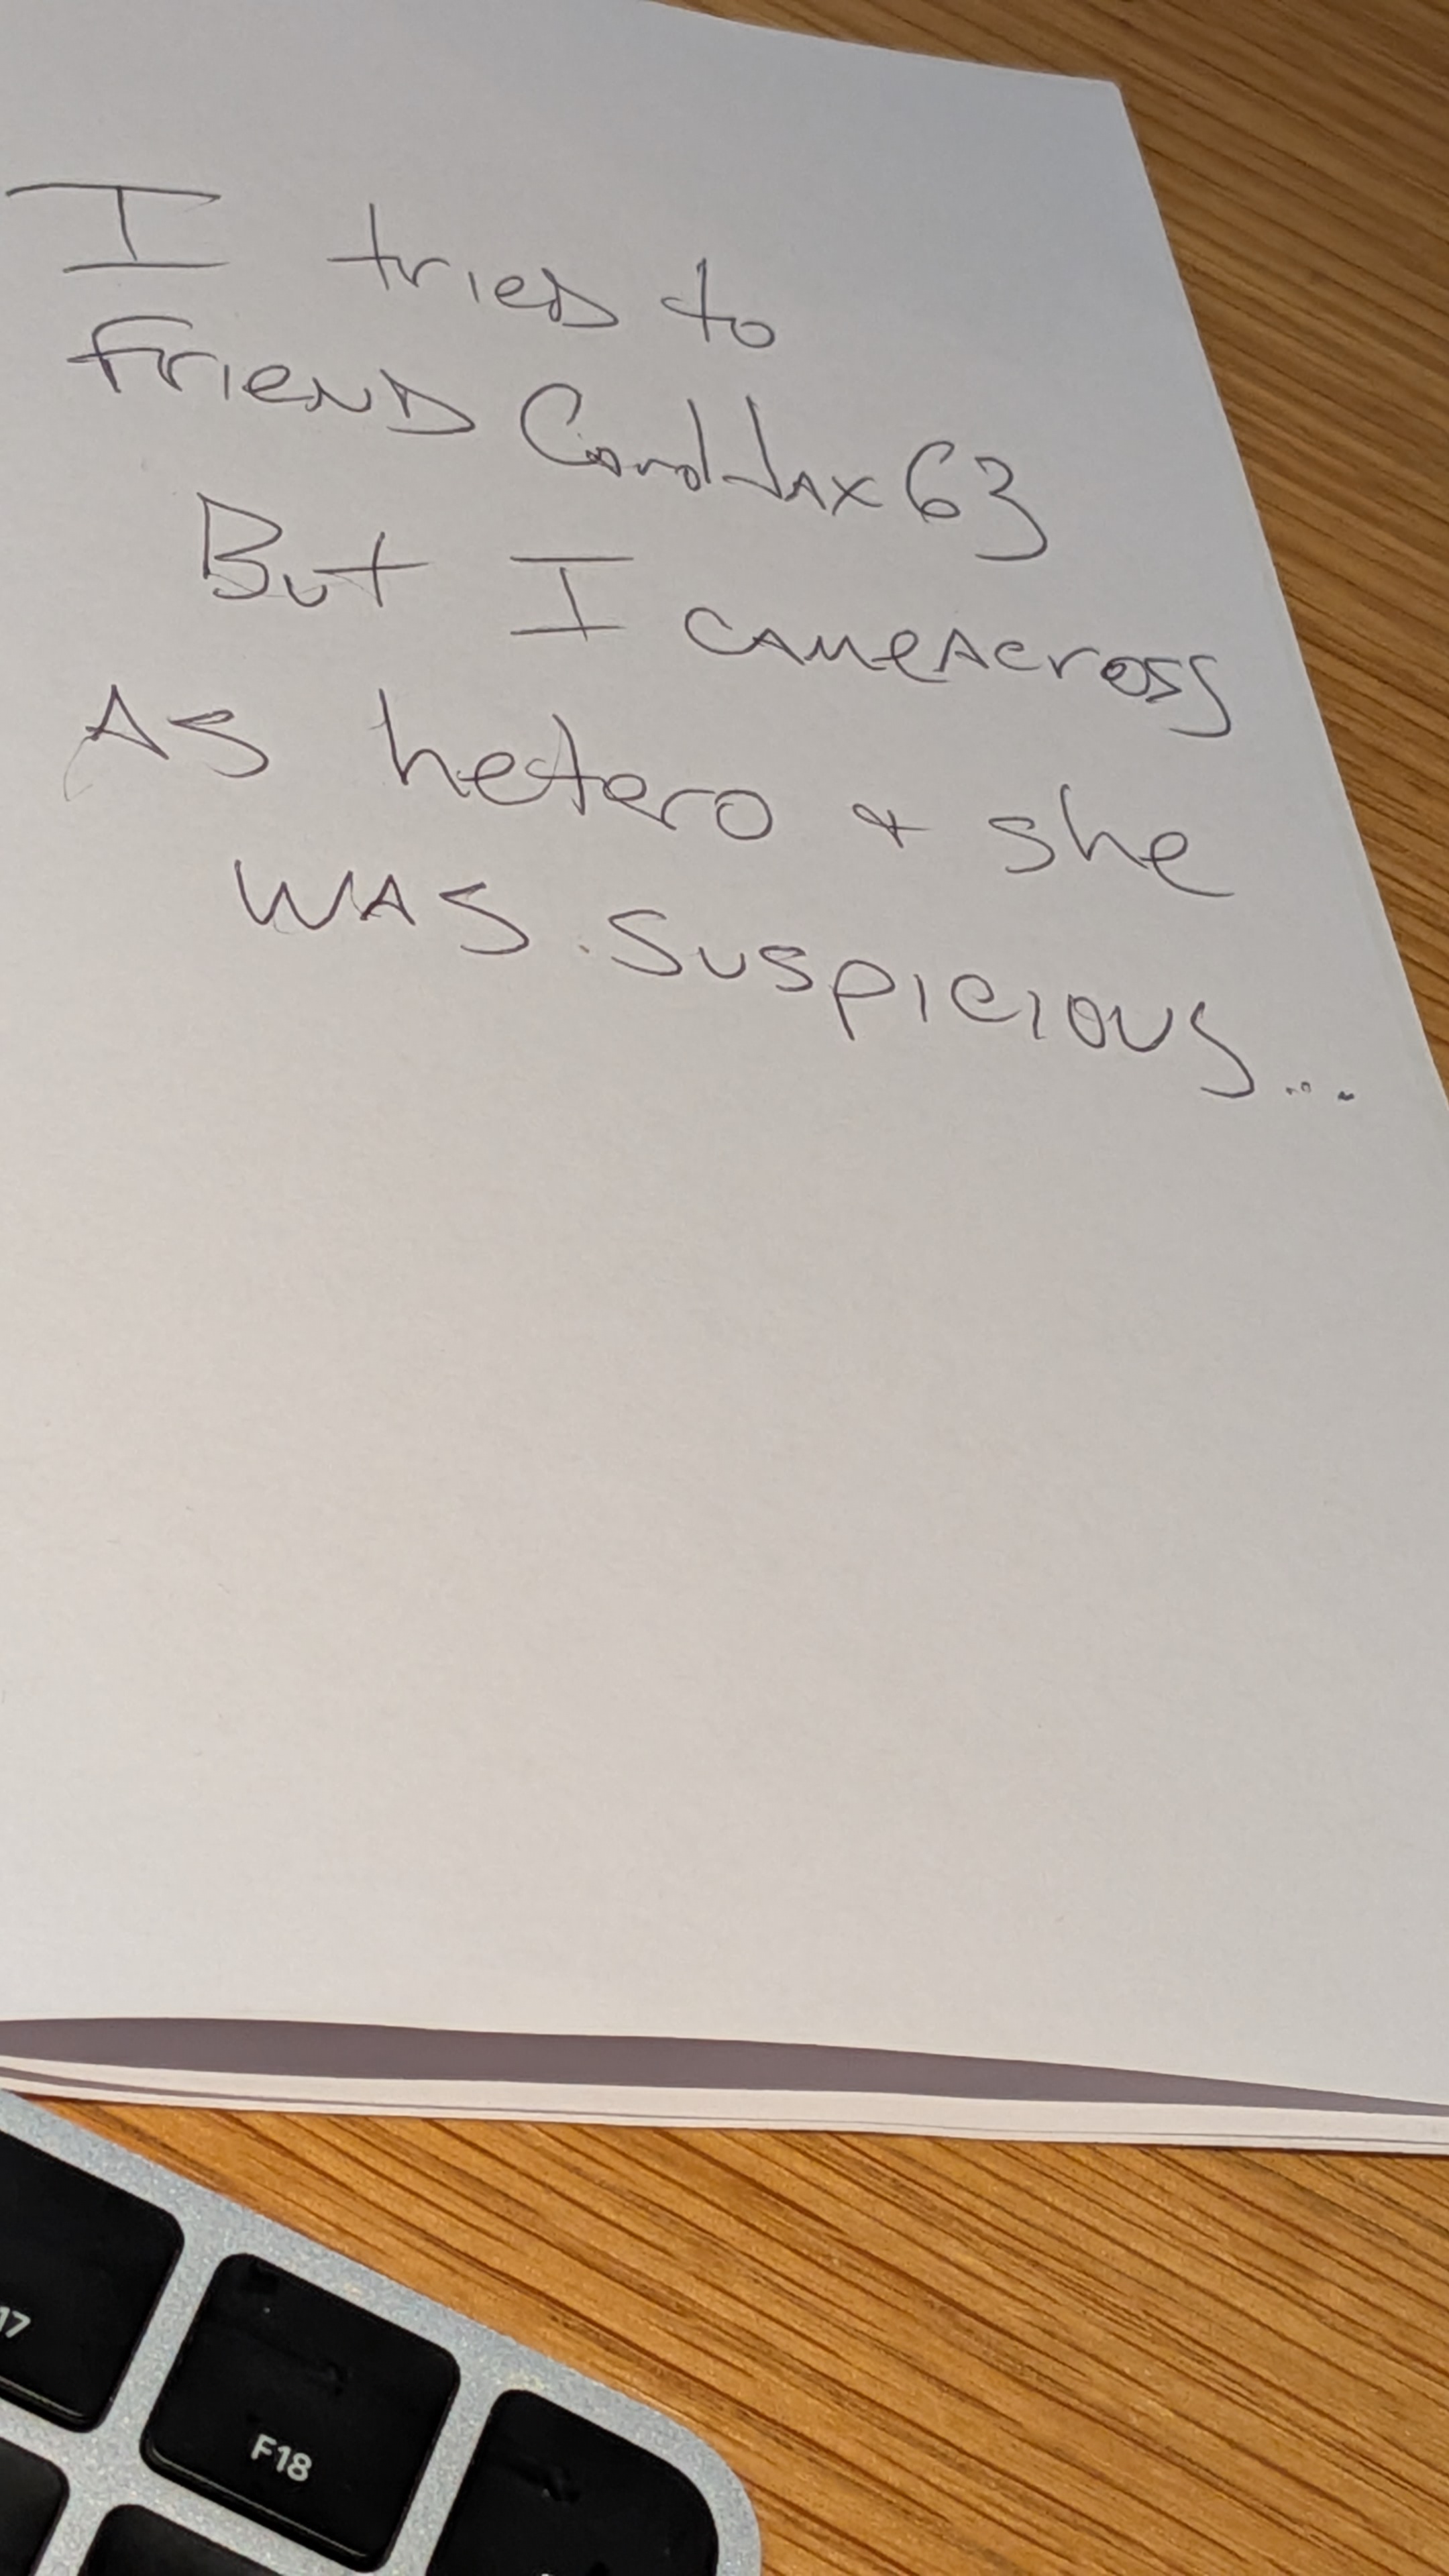 I tried to
FrienD CarolJax63
But I cameAcross
As hetero & she
WAS. Suspicious...
17
F18